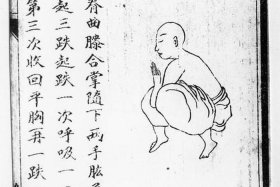 脊曲膝合掌隨下兩手肱
起三跌起跌一次呼吸一
第三次收回平胸再一跌